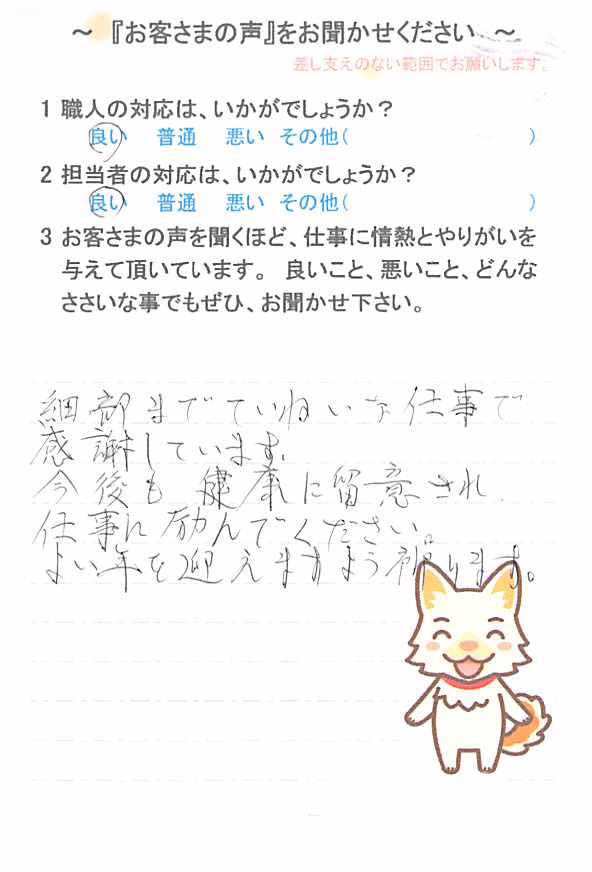 ~ 『お客さまの声』をお聞かせください ~
差し支えのない範囲でお願いします。
1 職人の対応は、いかがでしょうか?
良い 普通 悪い その他( )
2 担当者の対応は、いかがでしょうか?
良い 普通 悪い その他( )
3 お客さまの声を聞くほど、仕事に情熱とやりがいを
与えて頂いています。 良いこと、悪いこと、どんな
ささいな事でもぜひ、お聞かせ下さい。
細部までていねいな仕事で
感謝しています。
今後も健康に留意され
仕事に励んでください。
よい年を迎えますよう祈ります。